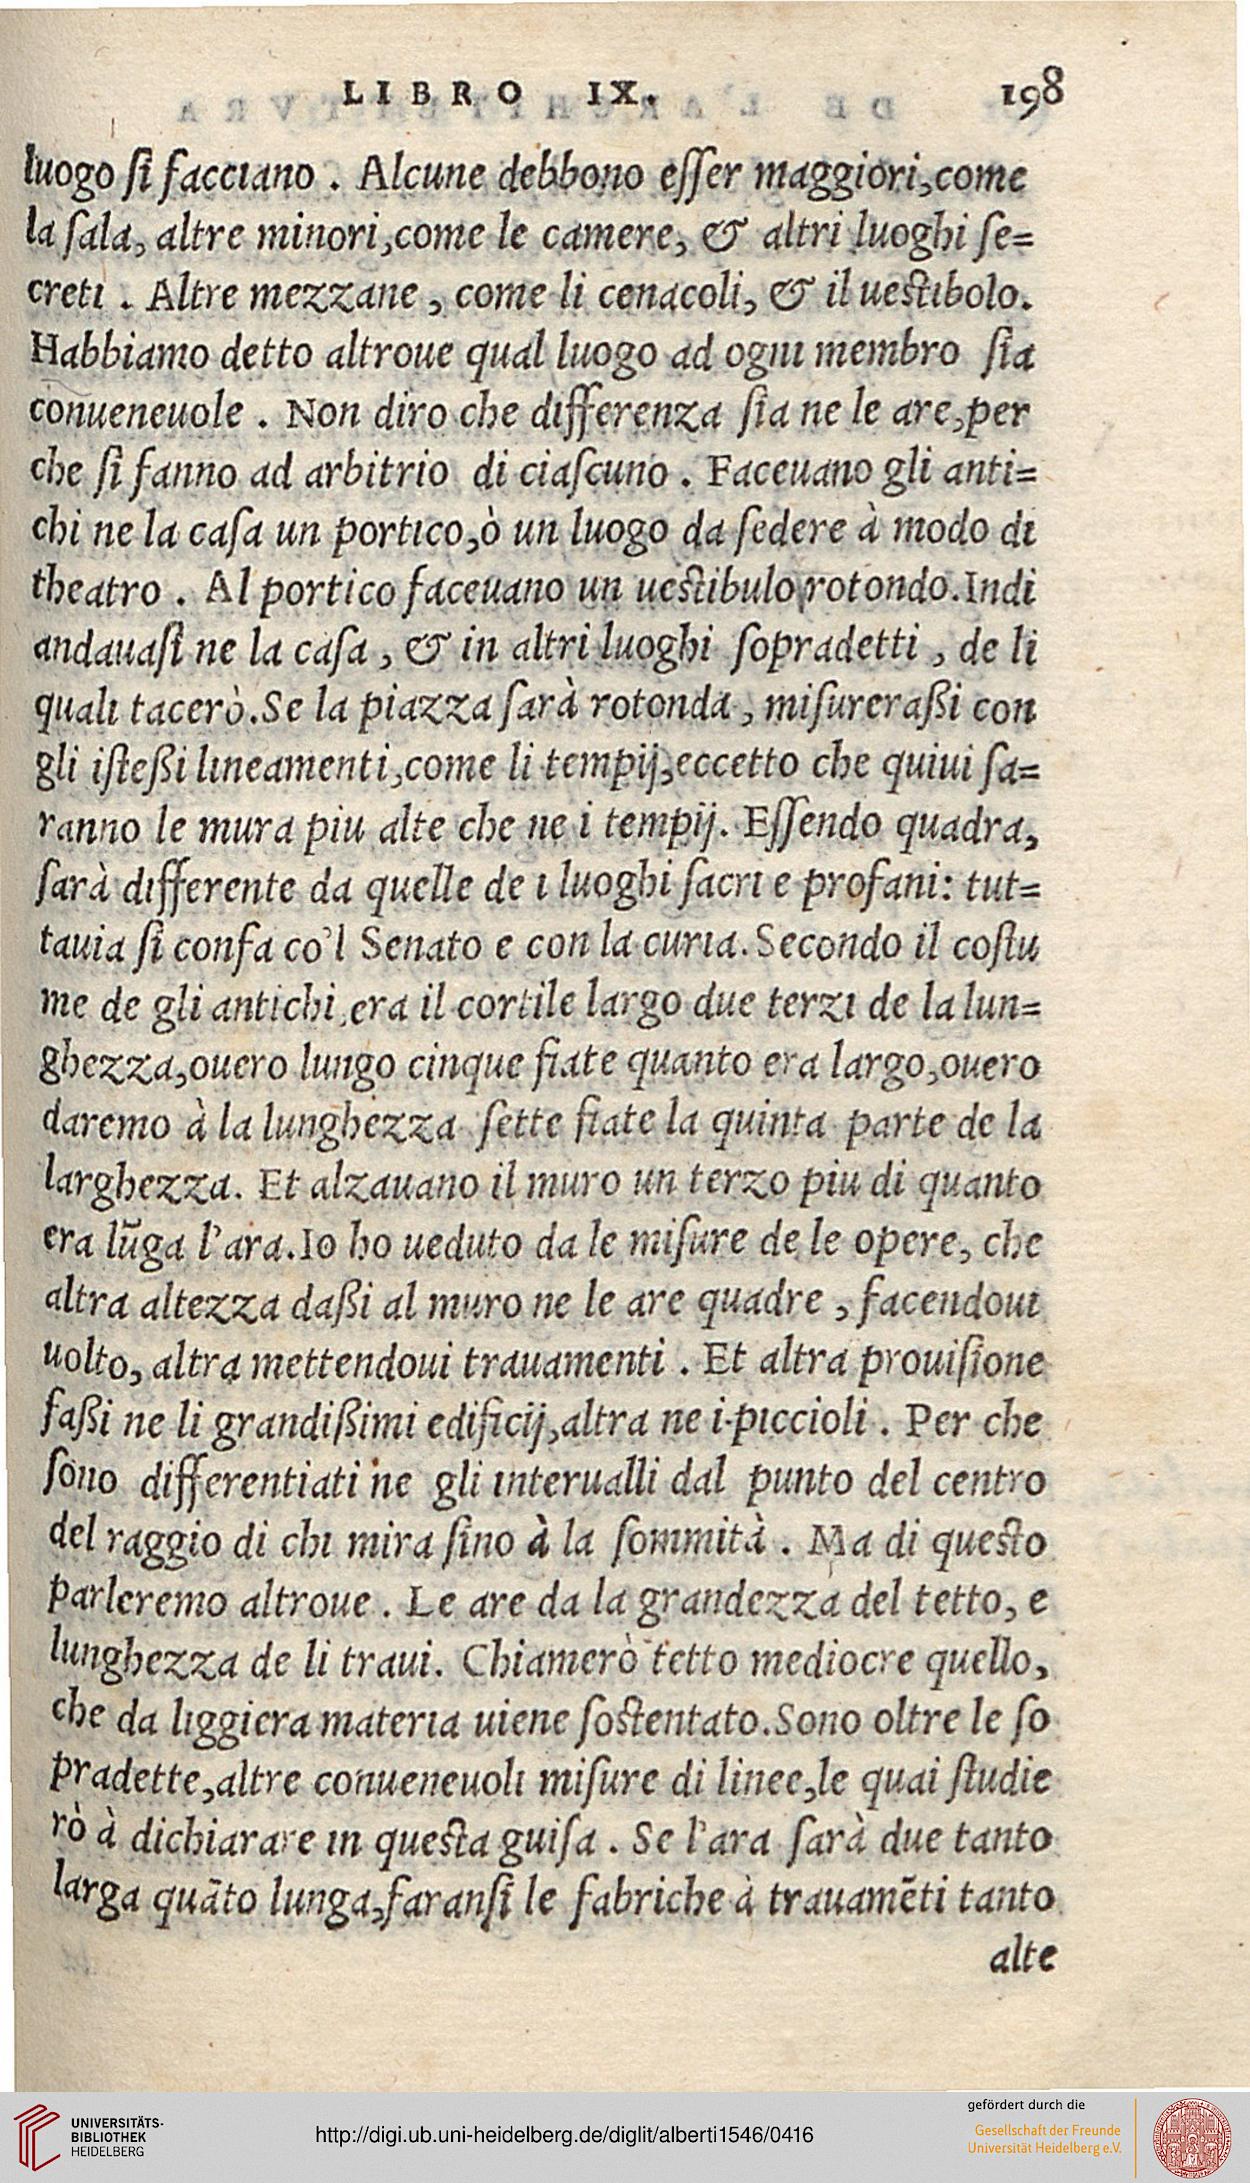 LIBRO IX. 198
luogo ſi facciano . Alcune debbono eſſer maggiori,come
la ſala, altre minori,come le camere, & altri luoghi ſe=
creti . Altre mezzane , come li cenacoli, & il ueſtibolo.
Habbiamo detto altroue qual luogo ad ogni membro ſia
conueneuole . Non diro che differenza ſia ne le are,per
che ſi fanno ad arbitrio di ciaſcuno . Faceuano gli anti=
chi ne la caſa un portico,ò un luogo da ſedere à modo di
theatro . Al portico faceuano un ueſtibulo rotondo.Indi
andauaſi ne la caſa , & in altri luoghi ſopradetti , de li
quali tacerò.Se la piazza ſarà rotonda , miſureraßi con
gli iſteßi lineamenti,come li tempij,eccetto che quiui ſa=
ranno le mura piu alte che ne i tempij. Eſſendo quadra,
ſarà differente da quelle de i luoghi ſacri e profani: tut=
tauia ſi confa co'l Senato e con la curia. Secondo il coſtu
me de gli antichi,era il cortile largo due terzi de la lun=
ghezza,ouero lungo cinque fiate quanto era largo,ouero
daremo à la lunghezza ſette fiate la quinta parte de la
larghezza. Et alzauano il muro un terzo piu di quanto
era lũga l'ara.Io ho ueduto da le miſure de le opere, che
altra altezza daßi al muro ne le are quadre , facendoui
uolto, altra mettendoui trauamenti . Et altra prouiſione
faßi ne li grandißimi edificij,altra ne i piccioli . Per che
ſono differentiati ne gli interualli dal punto del centro
del raggio di chi mira ſino à la ſommità . Ma di queſto
parleremo altroue . Le are da la grandezza del tetto, e
lunghezza de li traui. Chiamerò tetto mediocre quello,
che da liggiera materia uiene ſoſtentato.Sono oltre le ſo
pradette,altre conueneuoli miſure di linee,le quai ſtudie
rò à dichiarare in queſta guiſa . Se l'ara ſarà due tanto
larga quãto lunga,faranſi le fabriche à trauamẽti tanto
alte
UNIVERSITÄTS-
BIBLIOTHEK
HEIDELBERG
http://digi.ub.uni-heidelberg.de/diglit/alberti1546/0416
gefördert durch die
Gesellschaft der Freunde
Universität Heidelberg e.V.